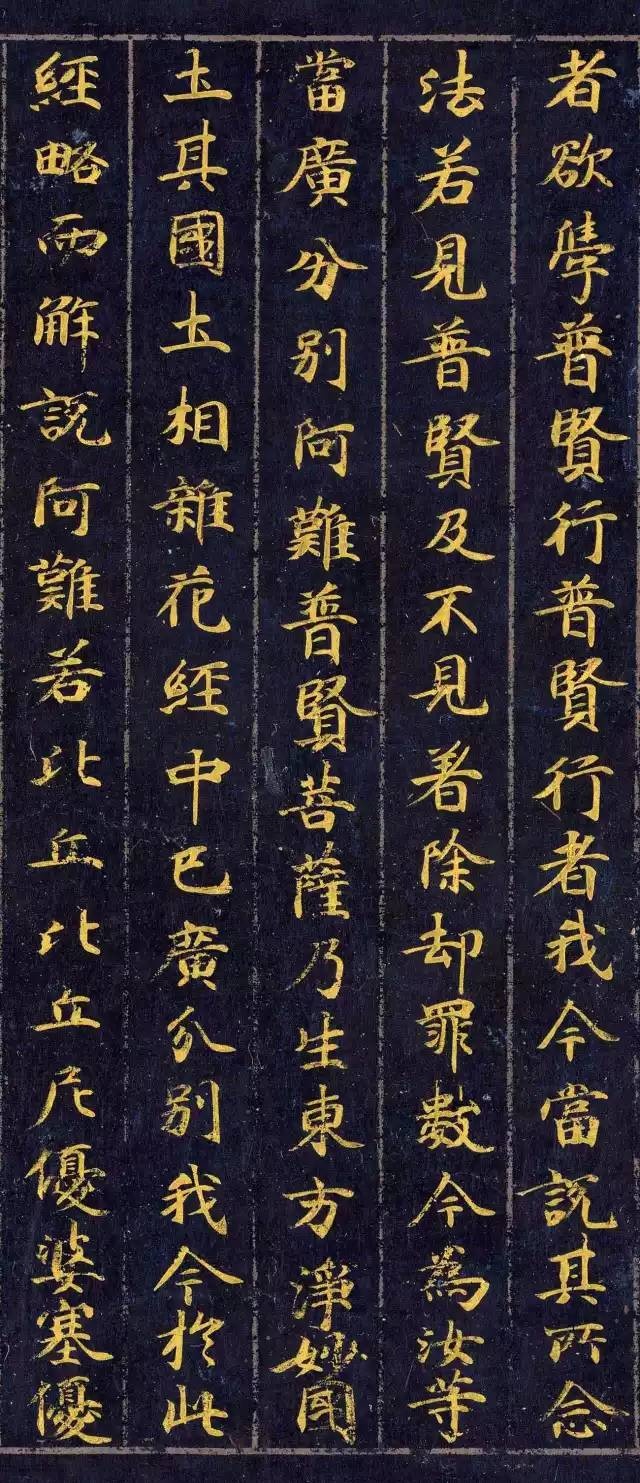 者欲學普賢行普賢行者我今當說其所念
法若見普賢及不見者除却罪數今為汝等
當廣分別阿難普賢菩薩乃生東方淨妙国
土其國土相雜花經中已廣分別我今於此
經略而解說阿難若比丘比丘尼優婆塞優